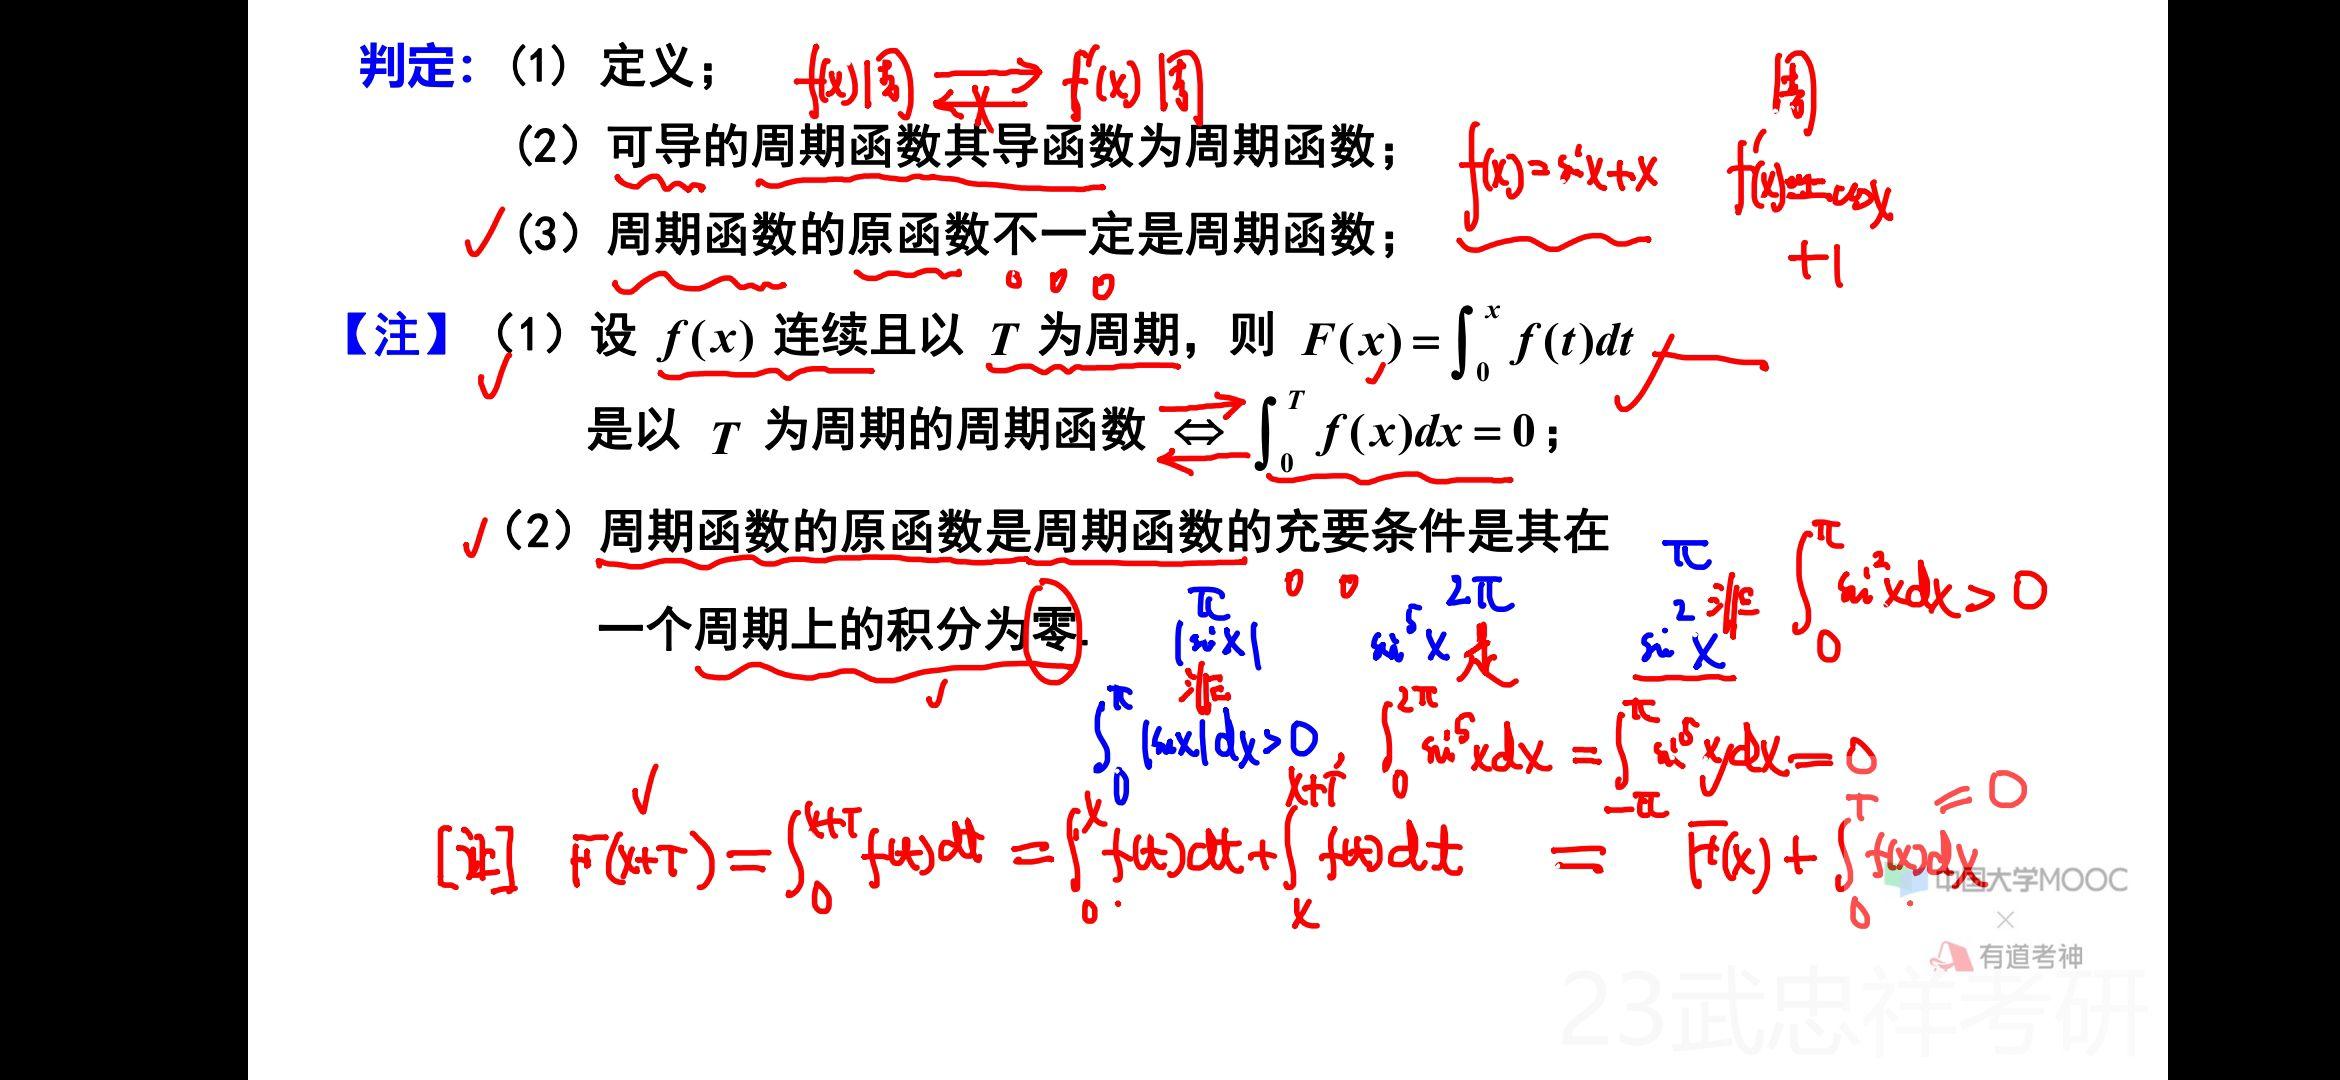 判定：（1）定义； f(x)周 ⇄ f′(x)周
周
（2）可导的周期函数其导函数为周期函数； f(x)=sinx+x f′(x)=cosx
+1
（3）周期函数的原函数不一定是周期函数；
【注】（1）设 f(x) 连续且以 T 为周期，则 F(x)=∫₀ˣ f(t)dt
是以 T 为周期的周期函数 ⇔ ∫₀ᵀ f(x)dx=0；
（2）周期函数的原函数是周期函数的充要条件是其在
π 2π π
一个周期上的积分为零. |sinx| sin⁵x 是 sin²x 非 ∫₀^π sin²xdx>0
非
∫₀^π |sinx|dx>0, ∫₀^2π sin⁵xdx = ∫_-π^π sin⁵xdx=0
[证] F(x+T)=∫₀^x+T f(t)dt=∫₀ˣ f(t)dt+∫ₓ^x+T f(t)dt = F(x)+∫₀ᵀ f(x)dx =0
中国大学MOOC
×
有道考神
23武忠祥考研